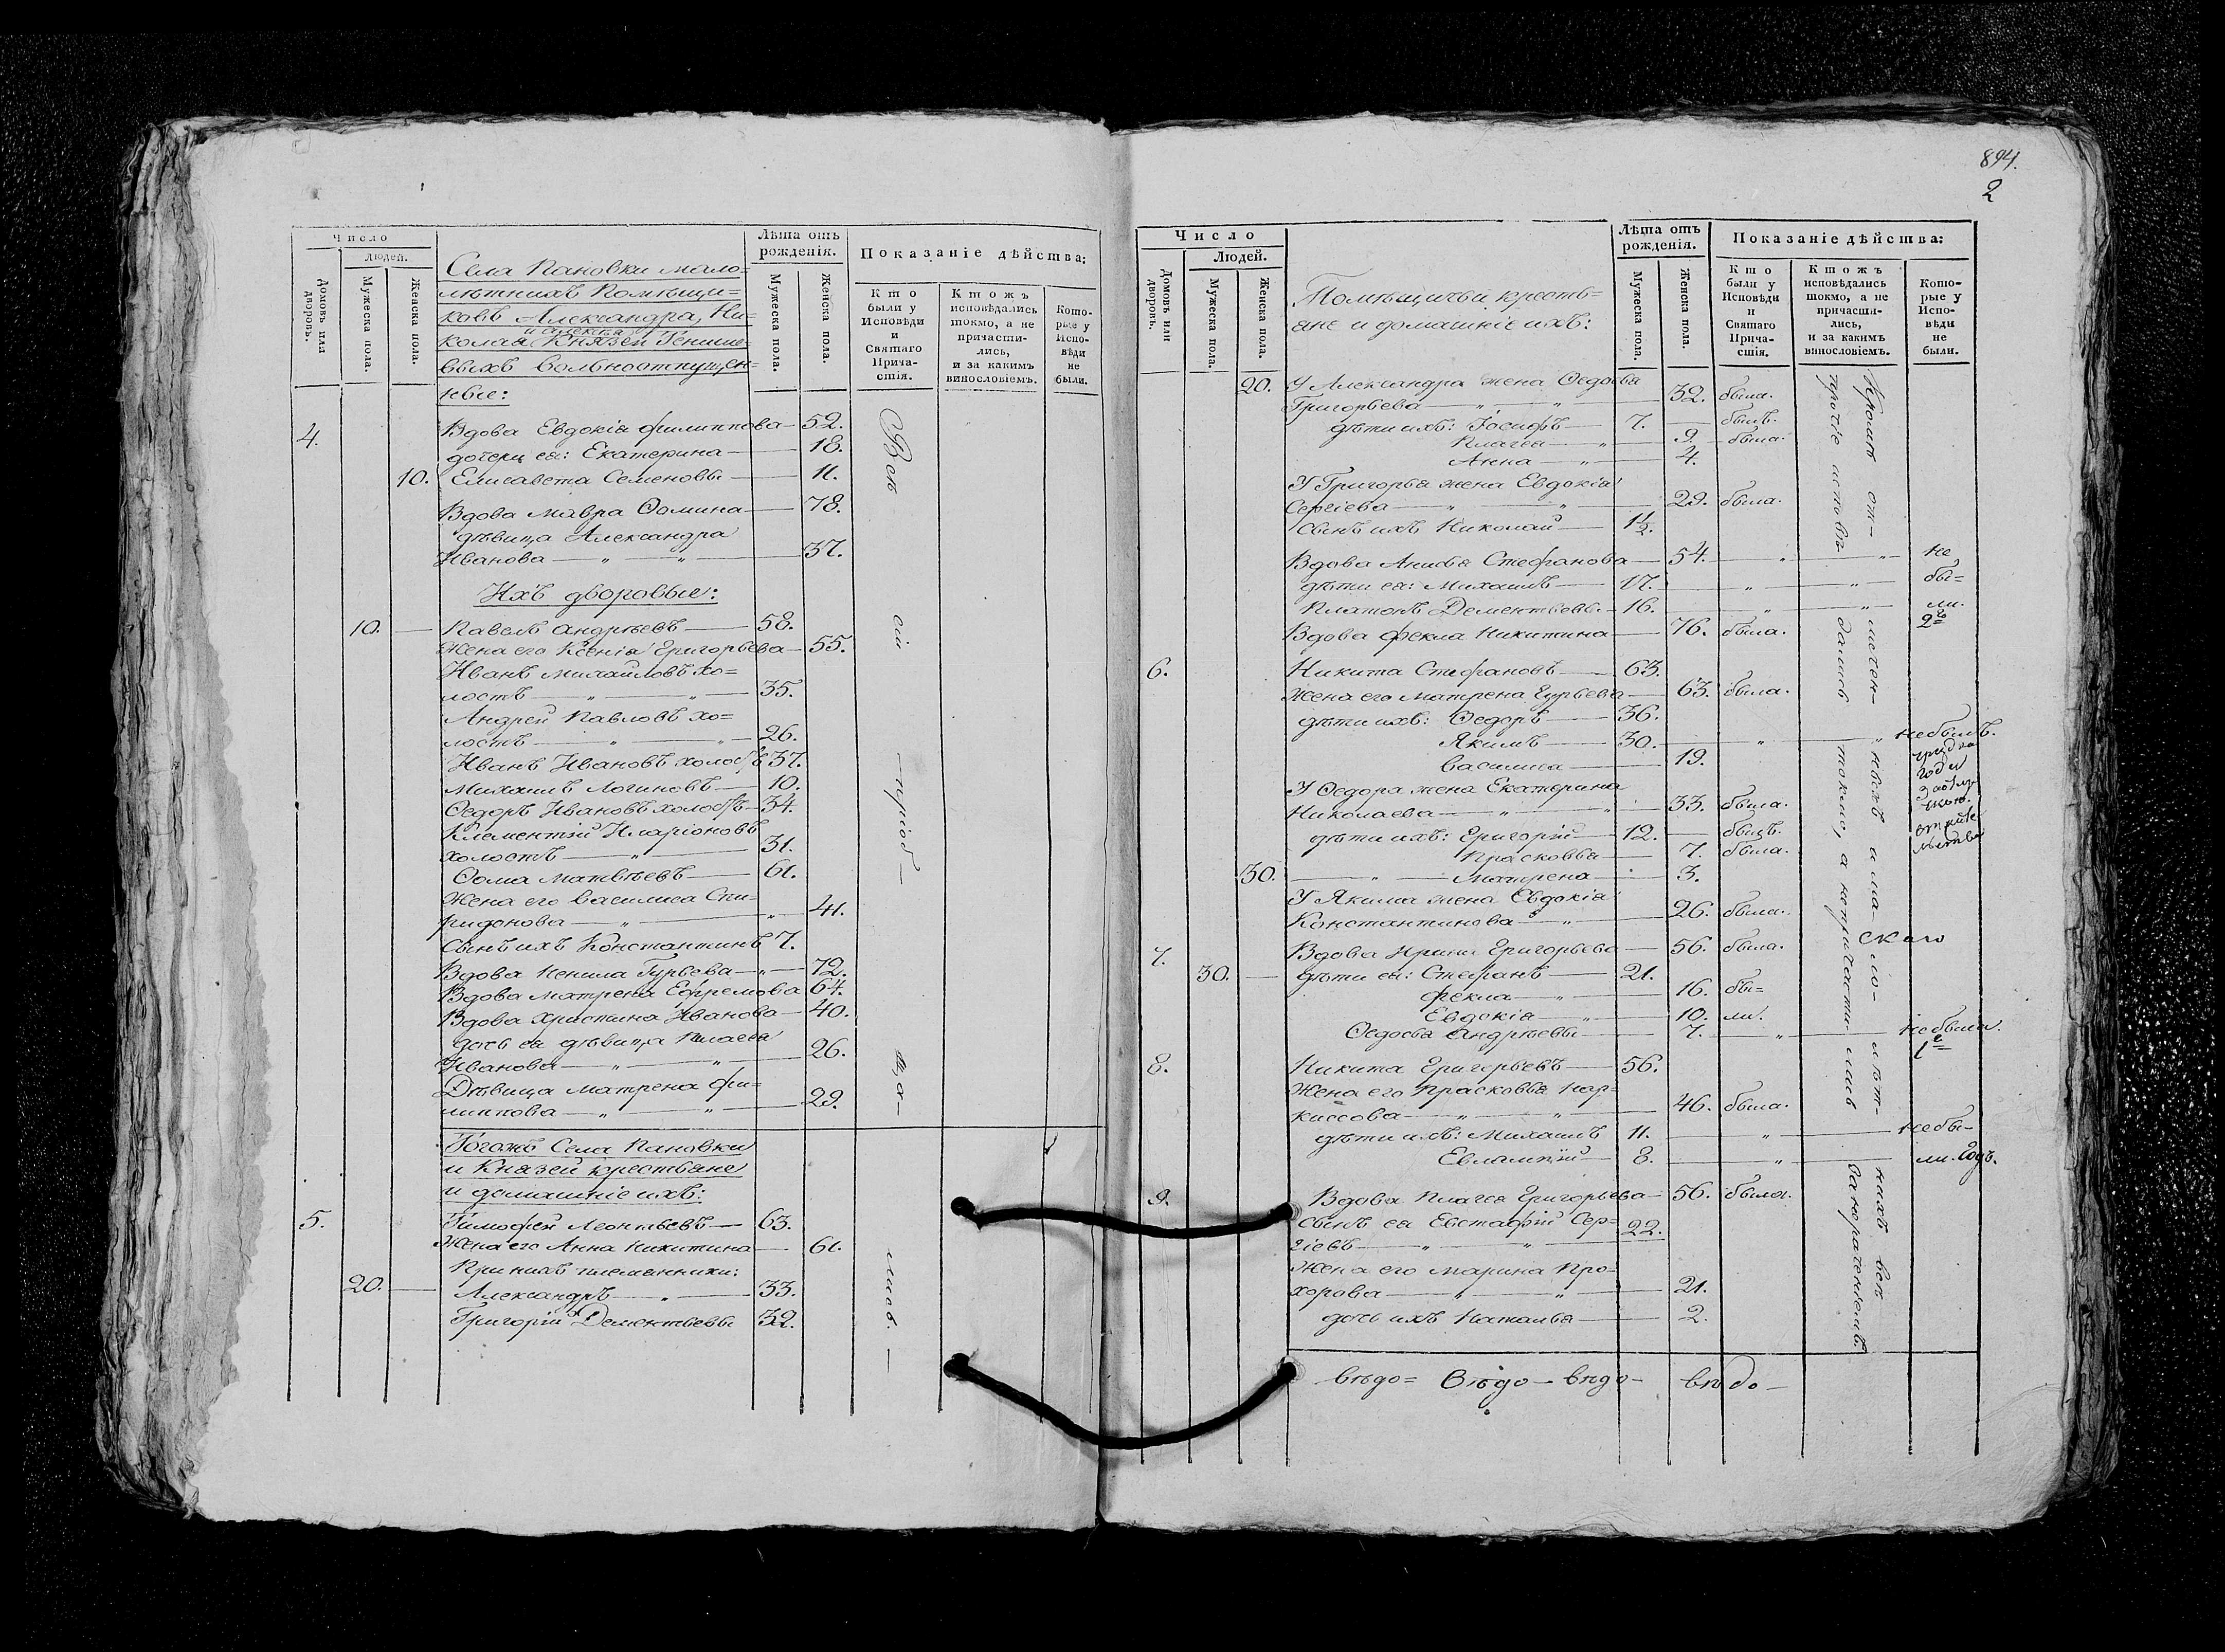 894.
2
Число
Людей.
Домовъ или дворовъ.
Мужеска пола.
Женска пола.
Села Пановки мало=
лѣтнихъ Помѣщи=
ковъ Александра, Ни=
колая Князей
вольноотпущен=
ные:
Лѣта отъ рожденія.
Мужеска пола.
Женска пола.
Показаніе дѣйства:
Кто были у Исповѣди и Святаго Прича-стія.
Ктожъ исповѣдались токмо, а не причасти-лись, и за какимъ винословіемъ.
Кото-рые у Испо-вѣди не были.
4. Вдова Евдокія Филиппова 52.
дочери ея: Екатерина 18.
10. Елисавета Семеновы 11.
Вдова Мавра Ѳомина 78.
дѣвица Александра
Иванова " " 37.
Ихъ дворовые:
10. Павелъ Андрѣевъ 58.
Жена его Ксенія Григорьева 55.
Иванъ Михайловъ хо=
лостъ " " 35.
Андрей Павловъ хо=
лостъ " " 26.
Иванъ Ивановъ холостъ 37.
Михаилъ Логиновъ 10.
Ѳедоръ Ивановъ холостъ 34.
Клементій Иларіоновъ
холостъ " 31.
Ѳома Матвѣевъ 61.
Жена его Василиса Спи-
ридонова " " 41.
Сынъ ихъ Константинъ 7.
Вдова Ненила Гурьева " 72.
Вдова Матрена Ефремова 64.
Вдова Христина Иванова 40.
дочь ея дѣвица Пелагея
Иванова " " 26.
Дѣвица Матрена Фи=
липпова " " 29.
Тогожъ Села Пановки
и Князей крестьяне
и домашніе ихъ:
5. Тимофей Леонтьевъ 63.
Жена его Анна Никитина 61.
При нихъ племянники:
20. Александръ " 33.
Григорій Дементьевы 32.
Всѣ
сіи
пріоб-
щах-
лись.
Число
Людей.
Домовъ или дворовъ.
Мужеска пола.
Женска пола.
Помѣщичьи кресть=
яне и домашніе ихъ:
Лѣта отъ рожденія.
Мужеска пола.
Женска пола.
Показаніе дѣйства:
Кто были у Исповѣди и Святаго Прича-стія.
Ктожъ исповѣдались токмо, а не причасти-лись, и за какимъ винословіемъ.
Кото-рые у Испо-вѣди не были.
20. У Александра жена Ѳедосья
Григорьева " " 32. была.
дѣти ихъ: Іосифъ 7. былъ.
Пелагея " 9. была.
Анна " 4.
У Григорья жена Евдокія
Сергіева " " 29. была.
Сынъ ихъ Николай 1½.
Вдова Анисья Стефанова 54. " " не
дѣти ея: Михаилъ 17. " " бы=
Платонъ Дементьевы 16. " " ли.
Вдова Фекла Никитина 76. была.
6. Никита Стефановъ 63.
Жена его Матрена Гурьева 63. была.
дѣти ихъ: Ѳедоръ 36.
Якимъ 30. " " небылъ.
Василиса 19.
У Ѳедора жена Екатерина
Николаева " " 33. была.
дѣти ихъ: Григорій 12. былъ.
Прасковья 7. была.
30. " Матрена 3.
У Якима жена Евдокія
Константинова " 26. была.
7. Вдова Ирина Григорьева 56. была.
30. дѣти ея: Стефанъ 21.
Фекла " 16. бы=
Евдокія " 10. ли.
Ѳедосья Андрѣевы 7. " небыли.
8. Никита Григорьевъ 56.
Жена его Прасковья Нар=
киссова " " 46. была.
дѣти ихъ: Михаилъ 11. " небы-
Евлампій 8. " ли. годъ.
9. Вдова Пелагея Григорьева 56. была.
Сынъ ея Евстафій Сер=
гіевъ " " 22.
Жена его Марина Про=
хорова " " 21.
дочь ихъ Наталья 2.
Кромѣ от-мѣчен-ныхъ и ма-ло-лѣт-нихъ всѣ
прочіе исповѣ-дались токмо, а непричасти-лись занераченіемъ.
вѣдо= вѣдо- вѣдо- вѣдо-